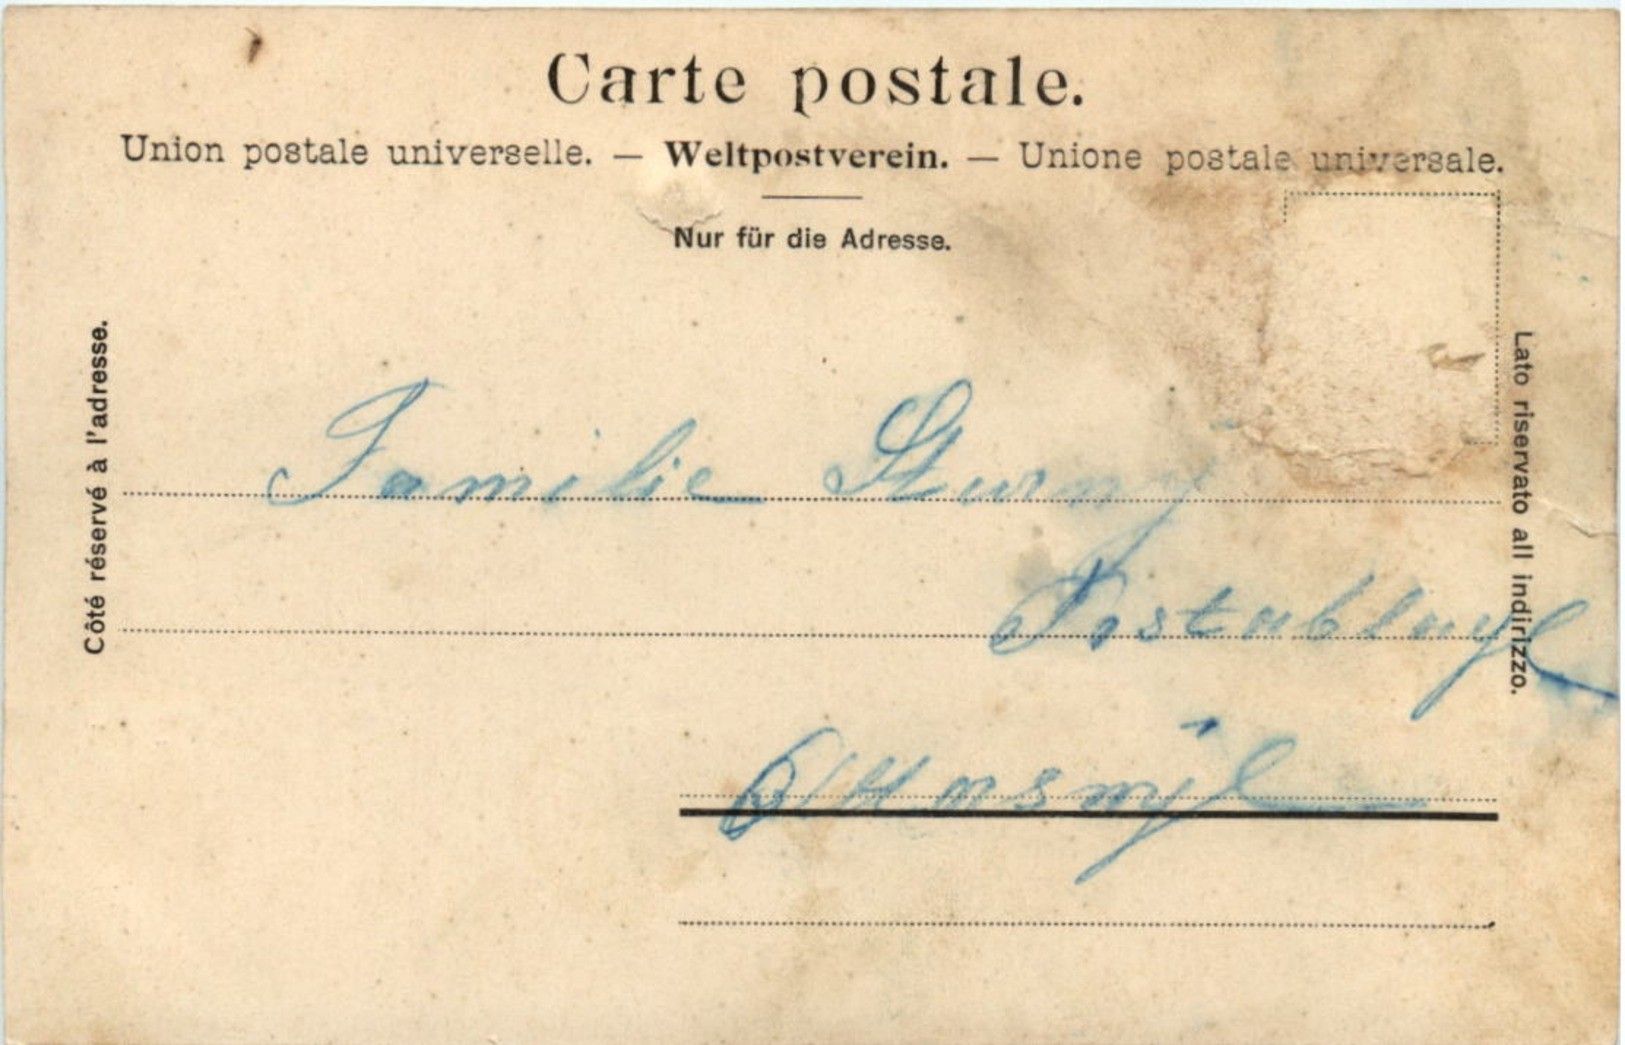 Carte postale.
Union postale universelle. — Weltpostverein. — Unione postale universale.
Nur für die Adresse.
Côté réservé à l'adresse.
Lato riservato all indirizzo.
Familie Sturny